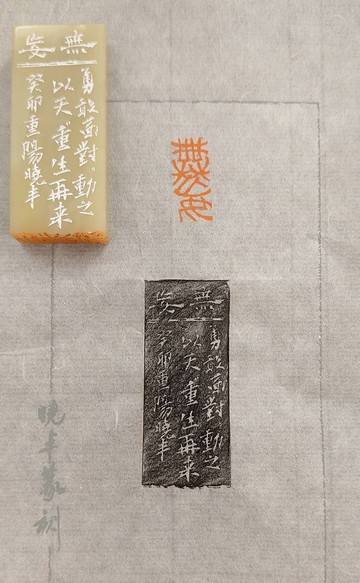 無妄
勇敢面對。動之
以天。重生再来
癸卯重陽曉丰
無妄
無妄
勇敢面對 動之
以天 重生再来
癸卯重陽曉丰
曉丰篆刻